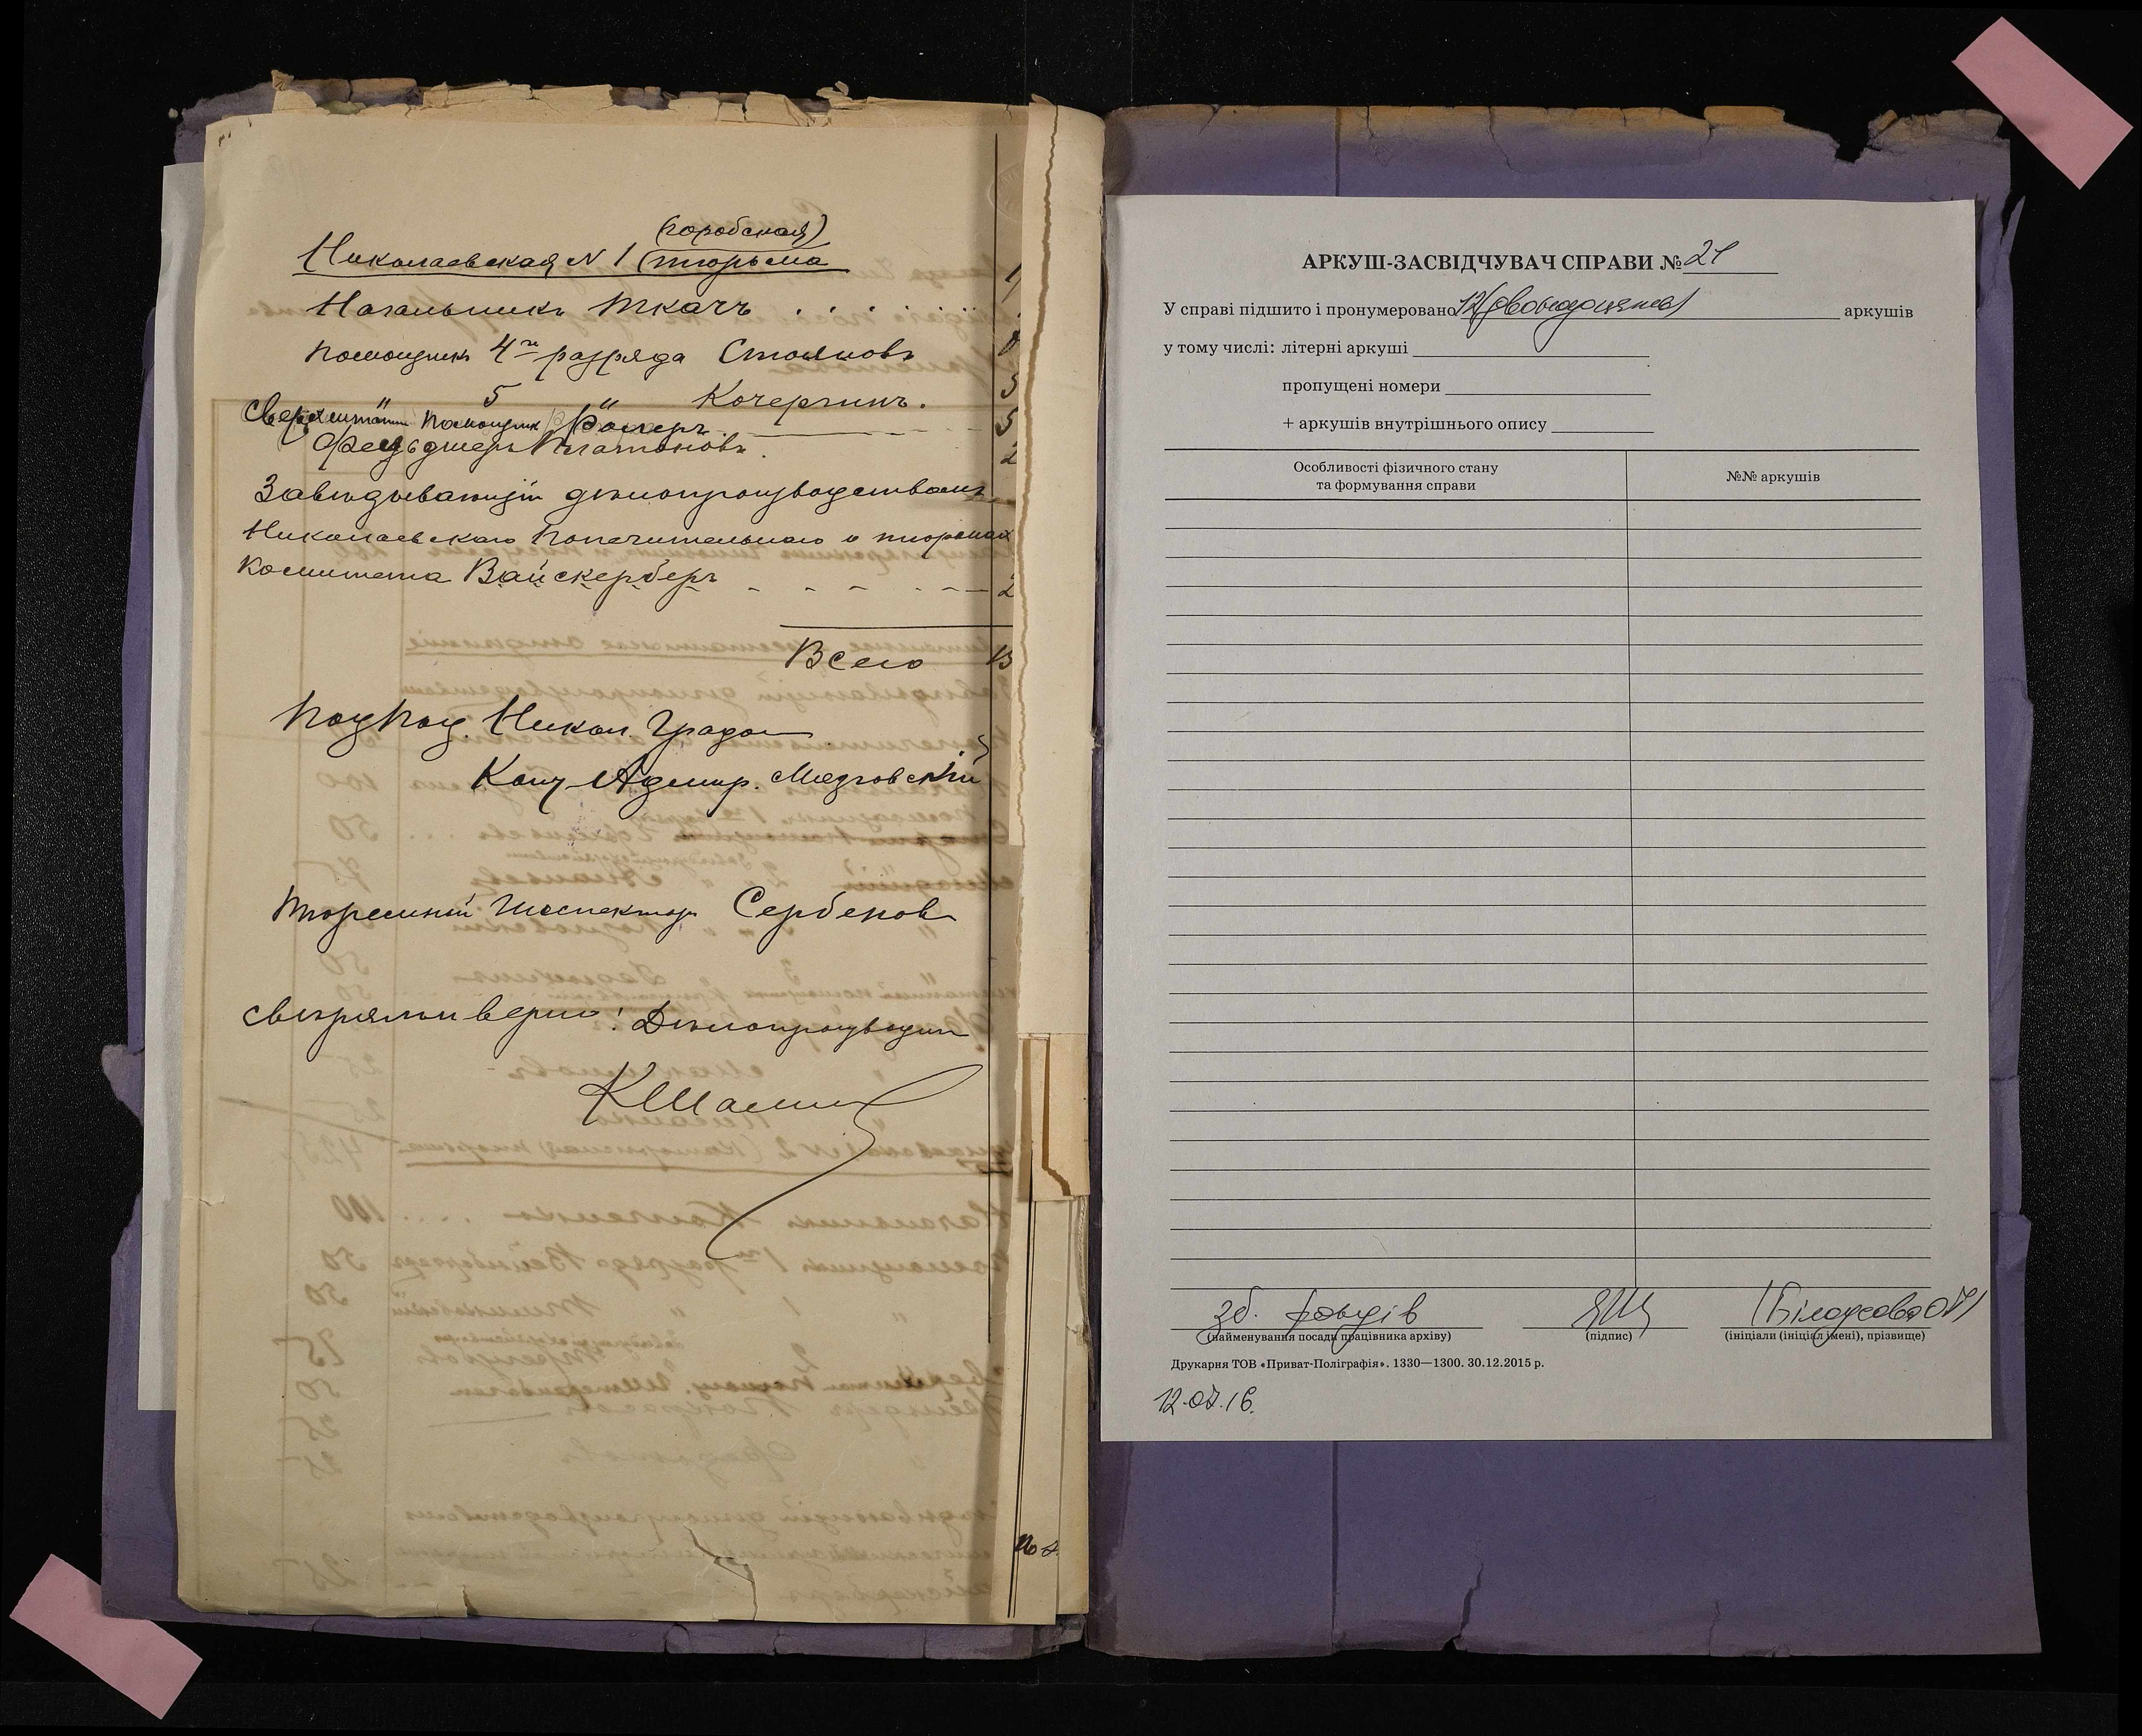 (городская)
Николаевская № 1 тюрьма
Начальникъ Ткачъ . . . . . .
Помощникъ 4го разряда Стояновъ
" 5 " Кочергинъ.
Сверхштатн Помощник
Фельдшеръ Платоновъ
Завѣдывающій дѣлопроизводствомъ
Николаевскаго Попечительнаго о тюрьмах
Комитета Вайскерберъ 2
Всего
Подпол. Никол. Градон
Адмир. Мязговскій
Тюремный Инспектор Сербенов
Свѣрялъ и вѣрно: Дѣлопроизводит
АРКУШ-ЗАСВІДЧУВАЧ СПРАВИ № 21
У справі підшито і пронумеровано 12 (дванадцять) аркушів
у тому числі: літерні аркуші
пропущені номери
+ аркушів внутрішнього опису
Особливості фізичного стану
та формування справи
№№ аркушів
зб. фондів
(найменування посади працівника архіву) (підпис) (ініціали (ініціал імені), прізвище)
Друкарня ТОВ «Приват-Поліграфія». 1330—1300. 30.12.2015 р.
12.07.16.